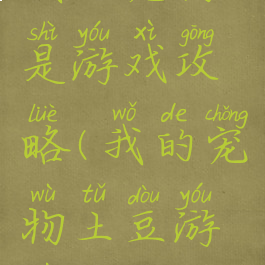 shì yóu xì gōng
是游戏攻
lüè wǒ de chǒng
略(我的宠
wù tǔ dòu yóu
物土豆游